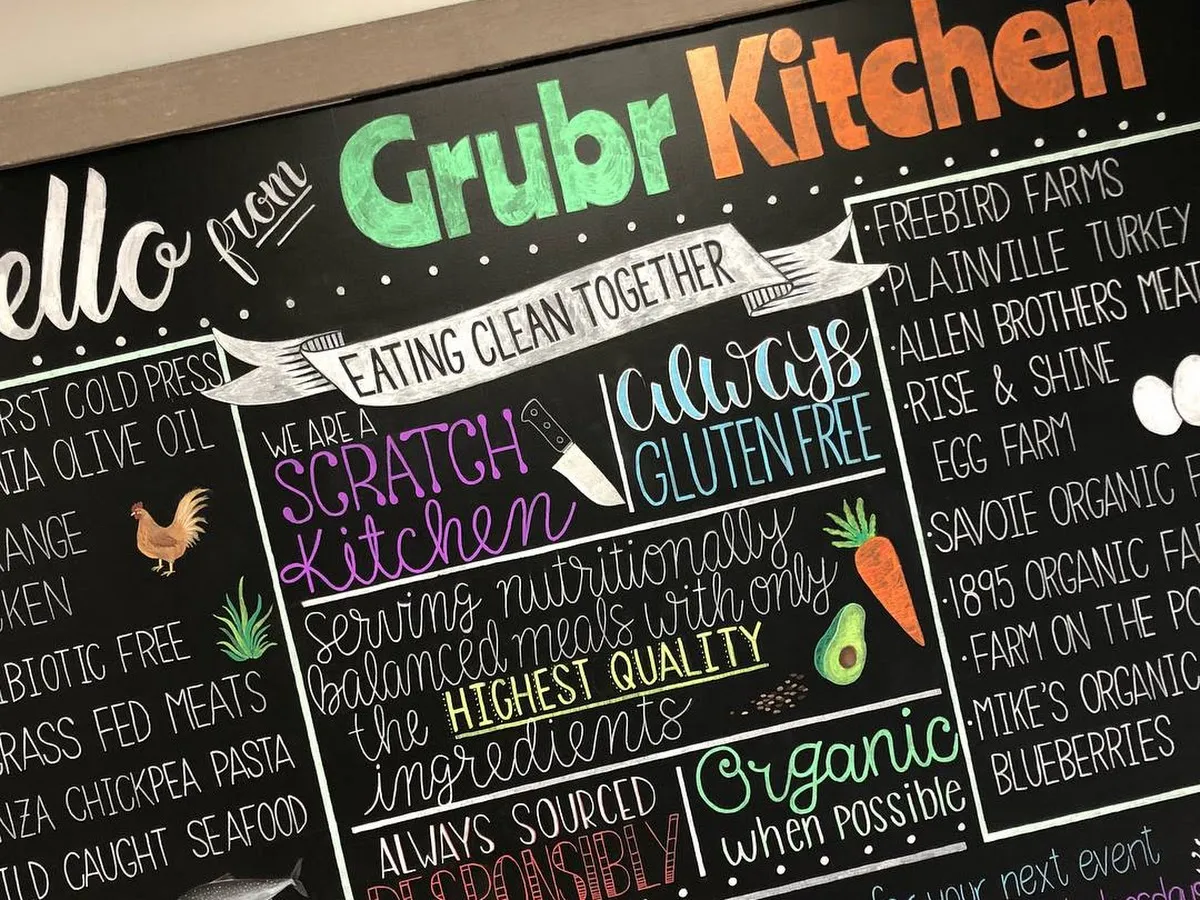 ello from Grubr Kitchen
EATING CLEAN TOGETHER
RST COLD PRESS
NIA OLIVE OIL
ANGE
CKEN
IBIOTIC FREE
GRASS FED MEATS
NZA CHICKPEA PASTA
ILD CAUGHT SEAFOOD
WE ARE A
SCRATCH
Kitchen
always
GLUTEN FREE
serving nutritionally
balanced meals with only
the HIGHEST QUALITY
ingredients
ALWAYS SOURCED
RESPONSIBLY
Organic
when possible
·FREEBIRD FARMS
·PLAINVILLE TURKEY
·ALLEN BROTHERS MEAT
·RISE & SHINE
EGG FARM
·SAVOIE ORGANIC F
·1895 ORGANIC FA
·FARM ON THE PO
·MIKE'S ORGANIC
BLUEBERRIES
for your next event